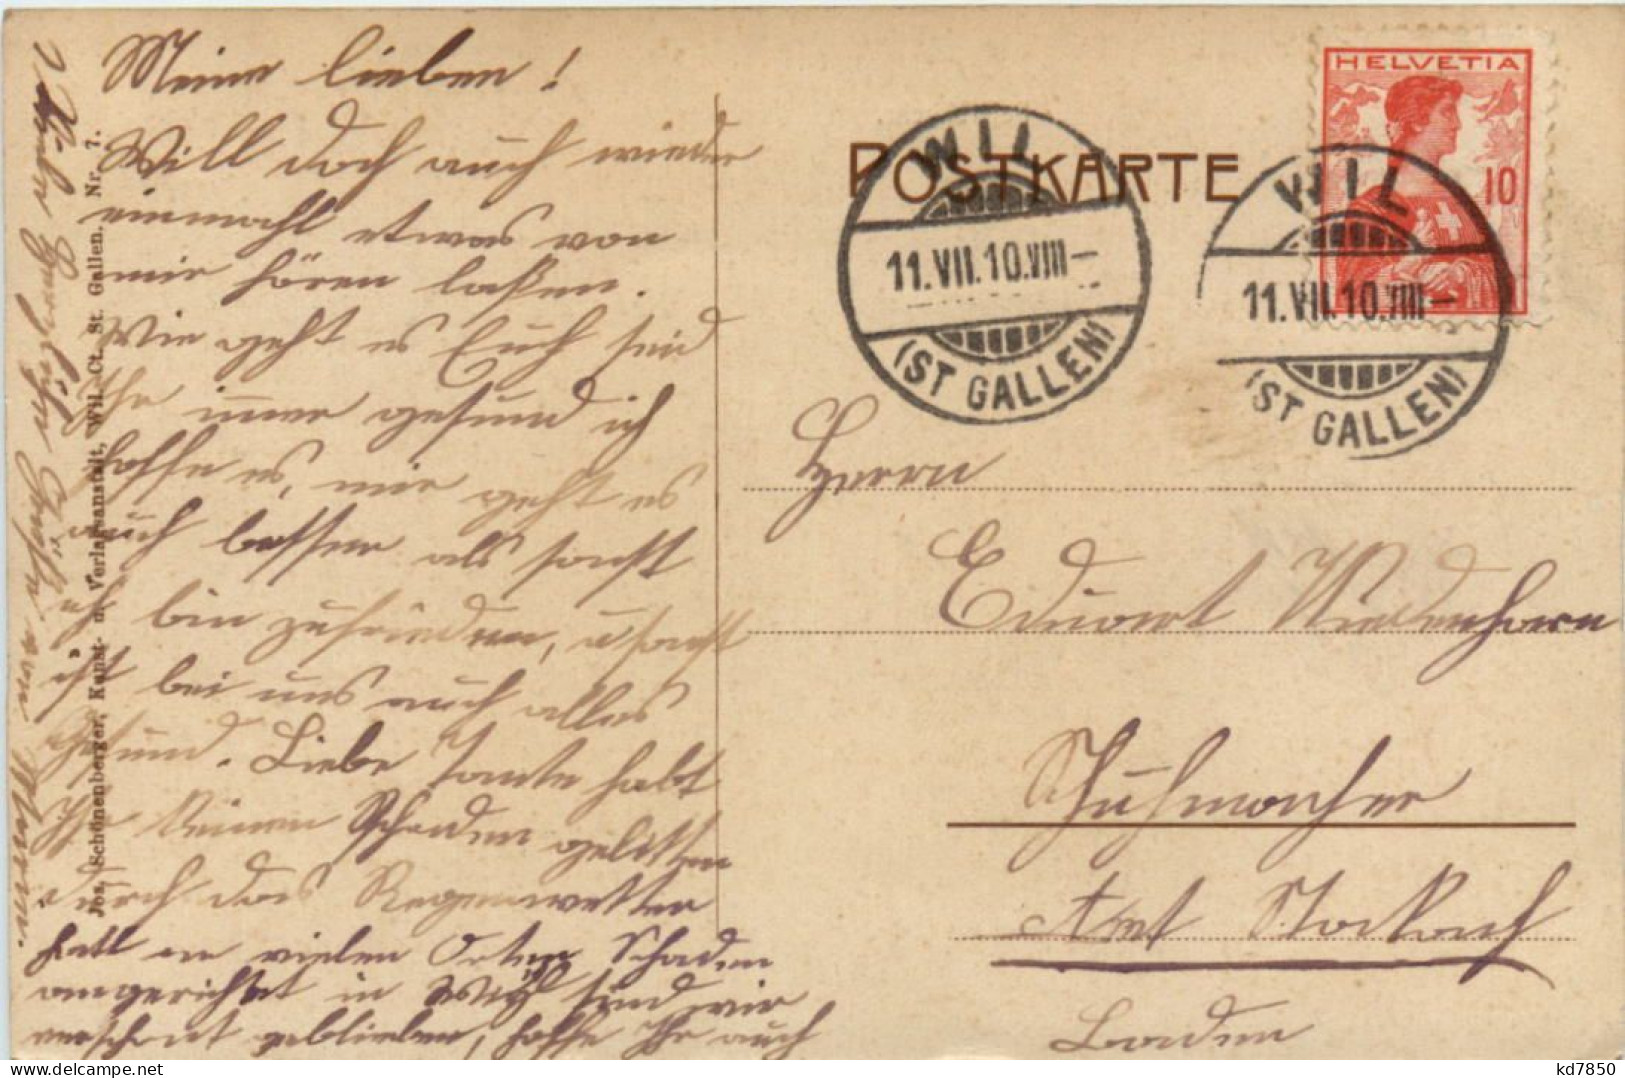 Meine lieben!
Will doch auch wieder
einmahl etwas von
mir hören laßen.
Wie geht es Euch seid
Ihr imer gesund ich
hoffe es, mir geht es
auch besser als sonst
ich bin zufrieden, u sonst
ist bei uns auch alles
Gesund. Liebe Tante habt
Ihr keinen Schaden gelitten
durch das Regenwetter
hatt an vielen Orten Schaden
angerichtet in Wyl sind wir
verschont geblieben, hoffe Ihr auch
Viele Herzliche Grüße von
Jos. Schönenberger, Kunst- u. Verlagsanstalt, Wil. Ct. St. Gallen. Nr. 7.
POSTKARTE
HELVETIA
10
WIL
11.VII.10.VIII–
(ST GALLEN)
WIL
11.VII.10.VIII–
(ST GALLEN)
Herrn
Eduart Wiedenhorn
Schuhmacher
Amt Stockach
Baden
kd7850